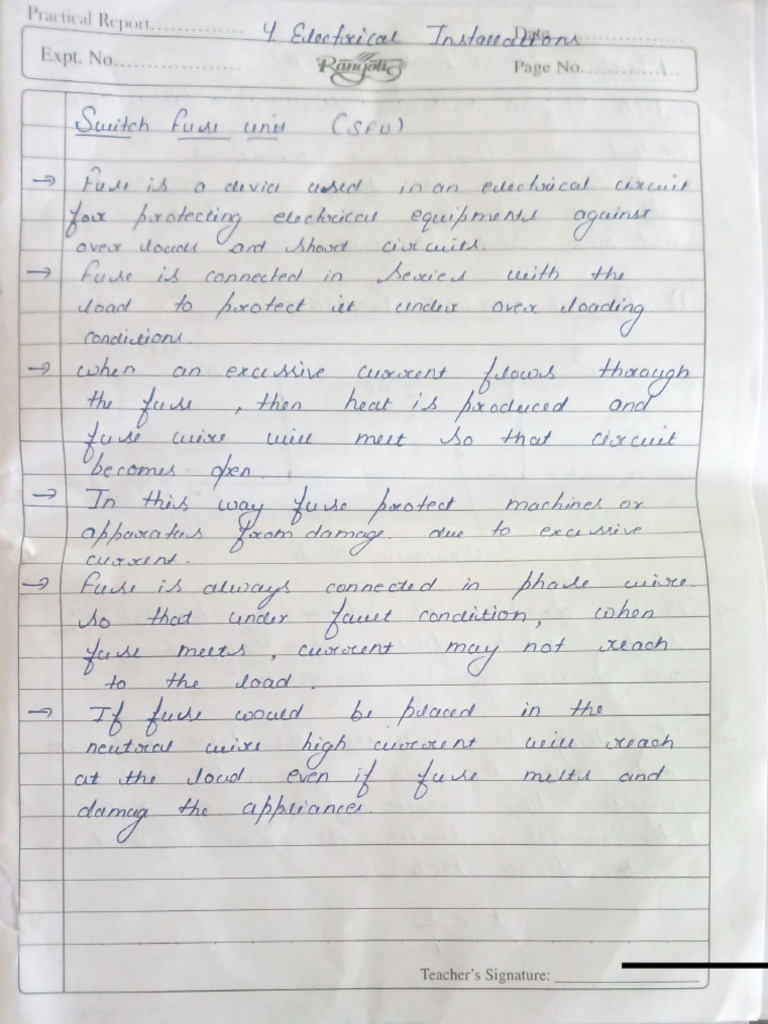 Practical Report.............. 4 Electrical Installations Date.....................
Expt. No.................... Rangoli Page No...............
Switch fuse unit (SFU)
→ Fuse is a device used in an electrical circuit
for protecting electrical equipments against
over loads and short circuits.
→ Fuse is connected in series with the
load to protect it under over loading
conditions.
→ when an excessive current flows through
the fuse , then heat is produced and
fuse wire will melt so that circuit
becomes open.
→ In this way fuse protect machines or
apparatus from damage. due to excessive
current.
→ Fuse is always connected in phase wire
so that under fault condition, when
fuse melts , current may not reach
to the load.
→ If fuse would be placed in the
neutral wire high current will reach
at the load even if fuse melts and
damag the appliances.
Teacher's Signature: ________________